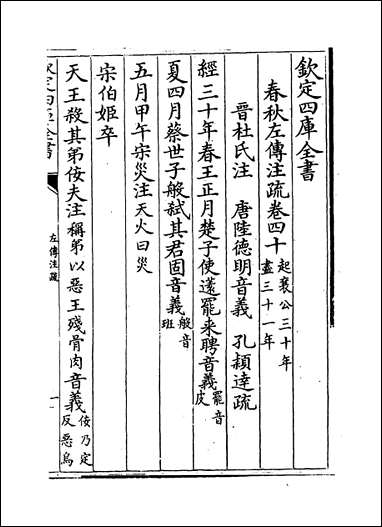 欽定四庫全書
春秋左傳注疏卷四十起襄公三十年盡三十一年
晉杜氏注 唐陸德明音義 孔穎達疏
經三十年春王正月楚子使薳罷来聘音義罷音皮
夏四月蔡世子般弑其君固音義般音班
五月甲午宋災注天火曰災
宋伯姬卒
天王殺其弟佞夫注稱弟以惡王殘骨肉音義佞乃定反惡烏
欽定四庫全書
左傳注疏
一